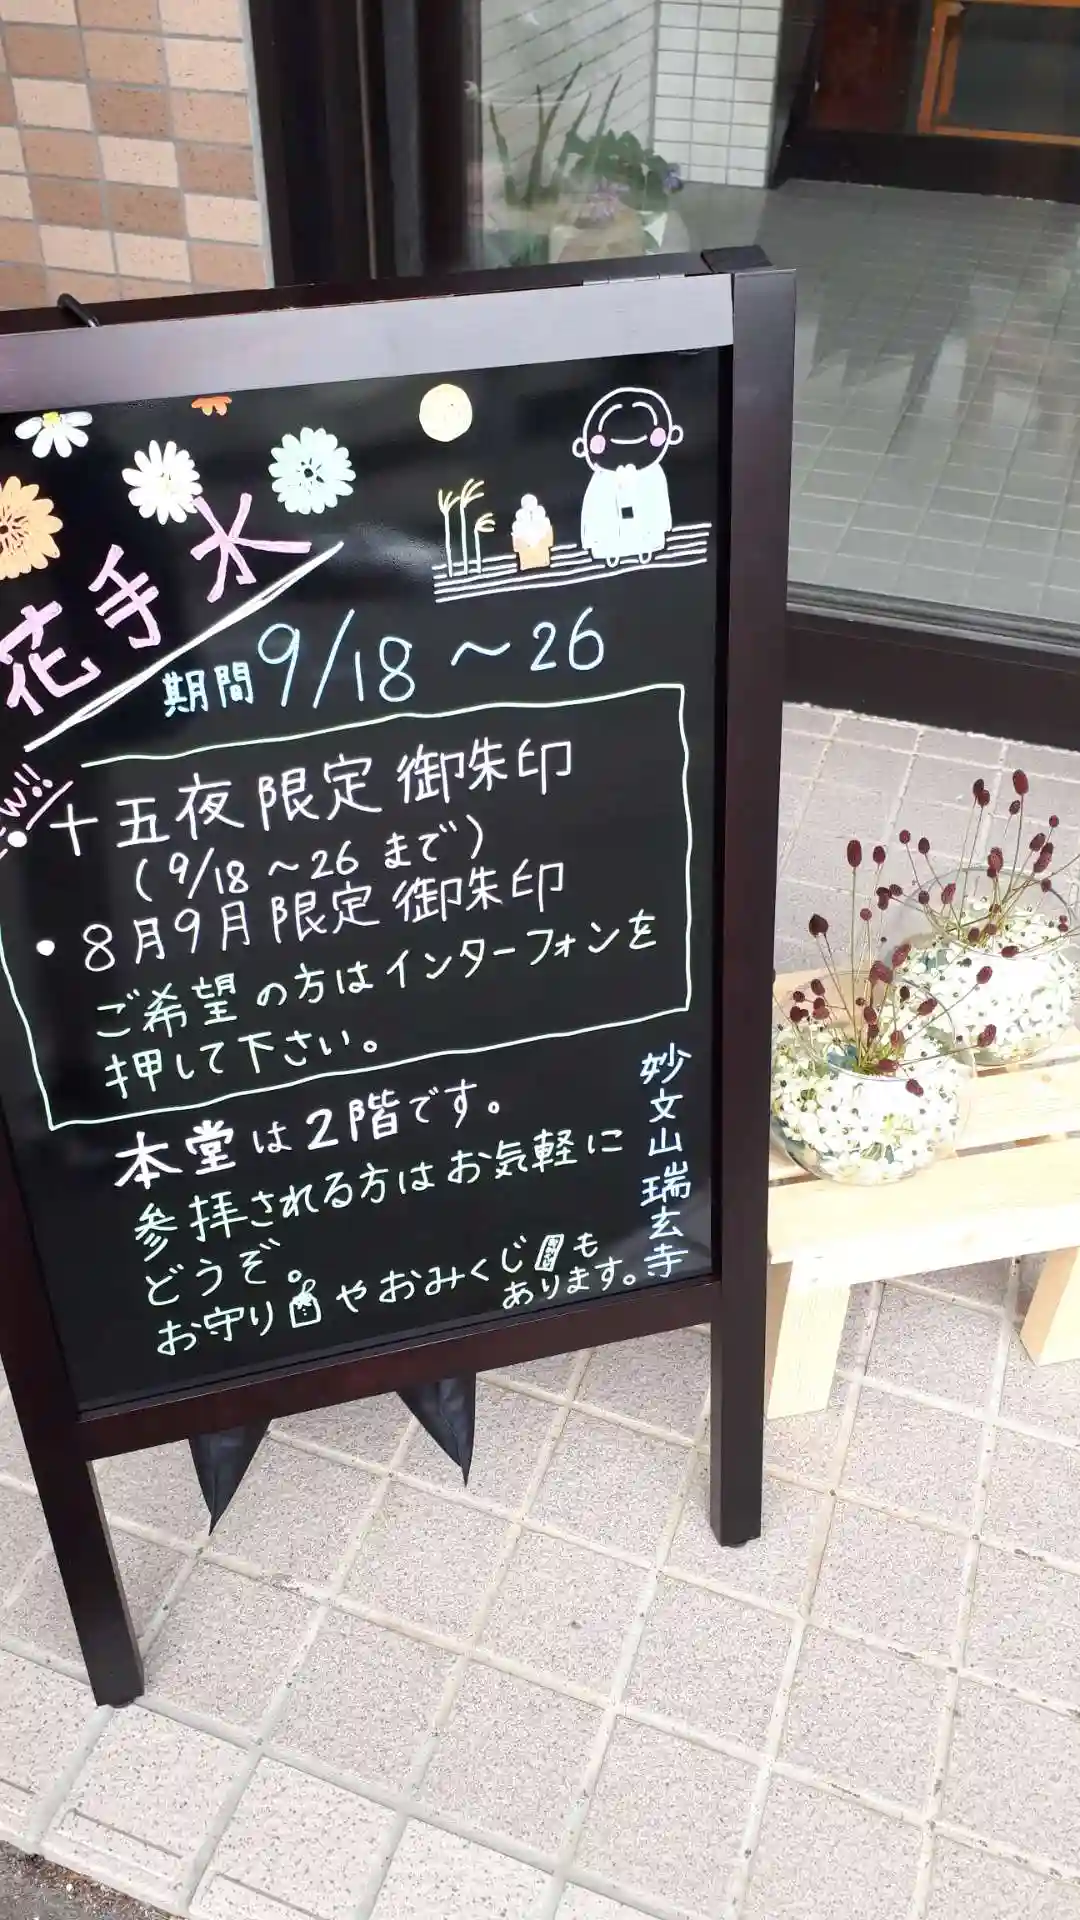 花手水
期間9/18～26
・十五夜限定御朱印
(9/18～26まで)
・8月9月限定御朱印
ご希望の方はインターフォンを
押して下さい。
本堂は2階です。
参拝される方はお気軽に
どうぞ。
お守りやおみくじも
あります。
妙文山瑞玄寺